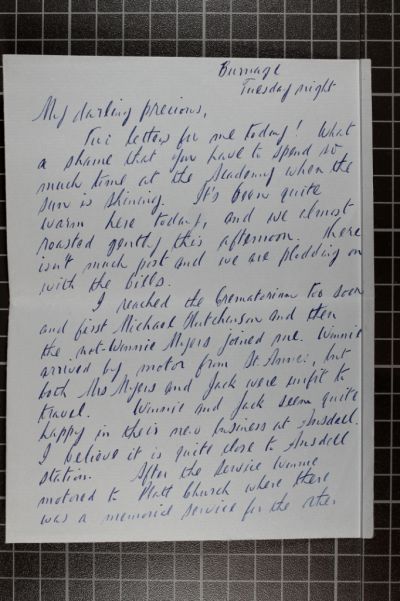 Burnage
Tuesday night
My darling precious,
Two letters for me today! What
a shame that you have to spend so
much time at the Academy when the
sun is shining. It's been quite
warm here today, and we almost
roasted gently this afternoon. There
isn't much post and we are plodding on
with the bills.
I reached the Crematorium too soon
and first Michael Hutchinson and then
the, not-Winnie Myers joined me. Winnie
arrived by motor from St Annes, but
both Mrs Myers and Jack were unfit to
travel. Winnie and Jack seem quite
happy in their new business at Ansdell.
I believe it is quite close to Ansdell
station. After the service Winnie
motored to Platt Church where there
was a memorial service for the other